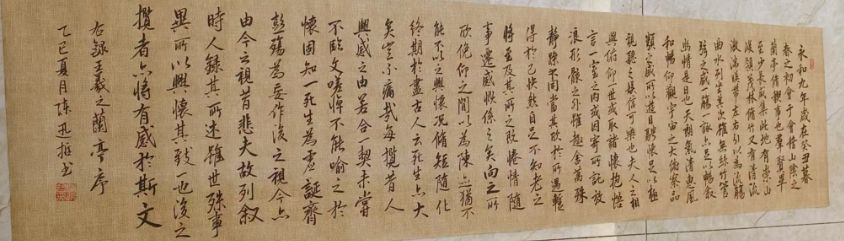 永和九年歲在癸丑暮
春之初會于會稽山陰之
蘭亭脩稧事也羣賢畢
至少長咸集此地有崇山
峻領茂林脩竹又有清流
激湍暎帶左右引以為流觴
曲水列坐其次雖無絲竹管
弦之盛一觴一詠亦足以暢敘
幽情是日也天朗氣清惠風
和暢仰觀宇宙之大俯察品
類之盛所以遊目騁懷足以極
視聽之娛信可樂也夫人之相
與俯仰一世或取諸懷抱悟
言一室之內或因寄所託放
浪形骸之外雖趣舍萬殊
靜躁不同當其欣於所遇輒
得於己快然自足不知老之
將至及其所之既惓情隨
事遷感慨係之矣向之所
欣俛仰之間以為陳迹猶不
能不以之興懷況脩短隨化
終期於盡古人云死生亦大
矣豈不痛哉每攬昔人
興感之由若合一契未嘗
不臨文嗟悼不能喻之於
懷固知一死生為虛誕齊
彭殤為妄作後之視今亦
由今之視昔悲夫故列敘
時人錄其所述雖世殊事
異所以興懷其致一也後之
攬者亦將有感於斯文
右錄王羲之蘭亭序
乙巳夏月陳迅書